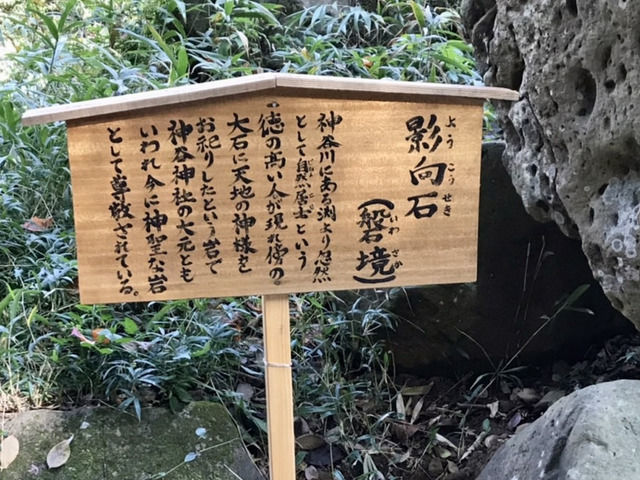 影向石
ようこうせき
(磐境)
いわさか
神谷川にある渕より忽然
として自然居士という
徳の高い人が現れ傍の
大石に天地の神様を
お祀りしたという岩で
神谷神社の元とも
いわれ今に神聖な岩
として尊敬されている。